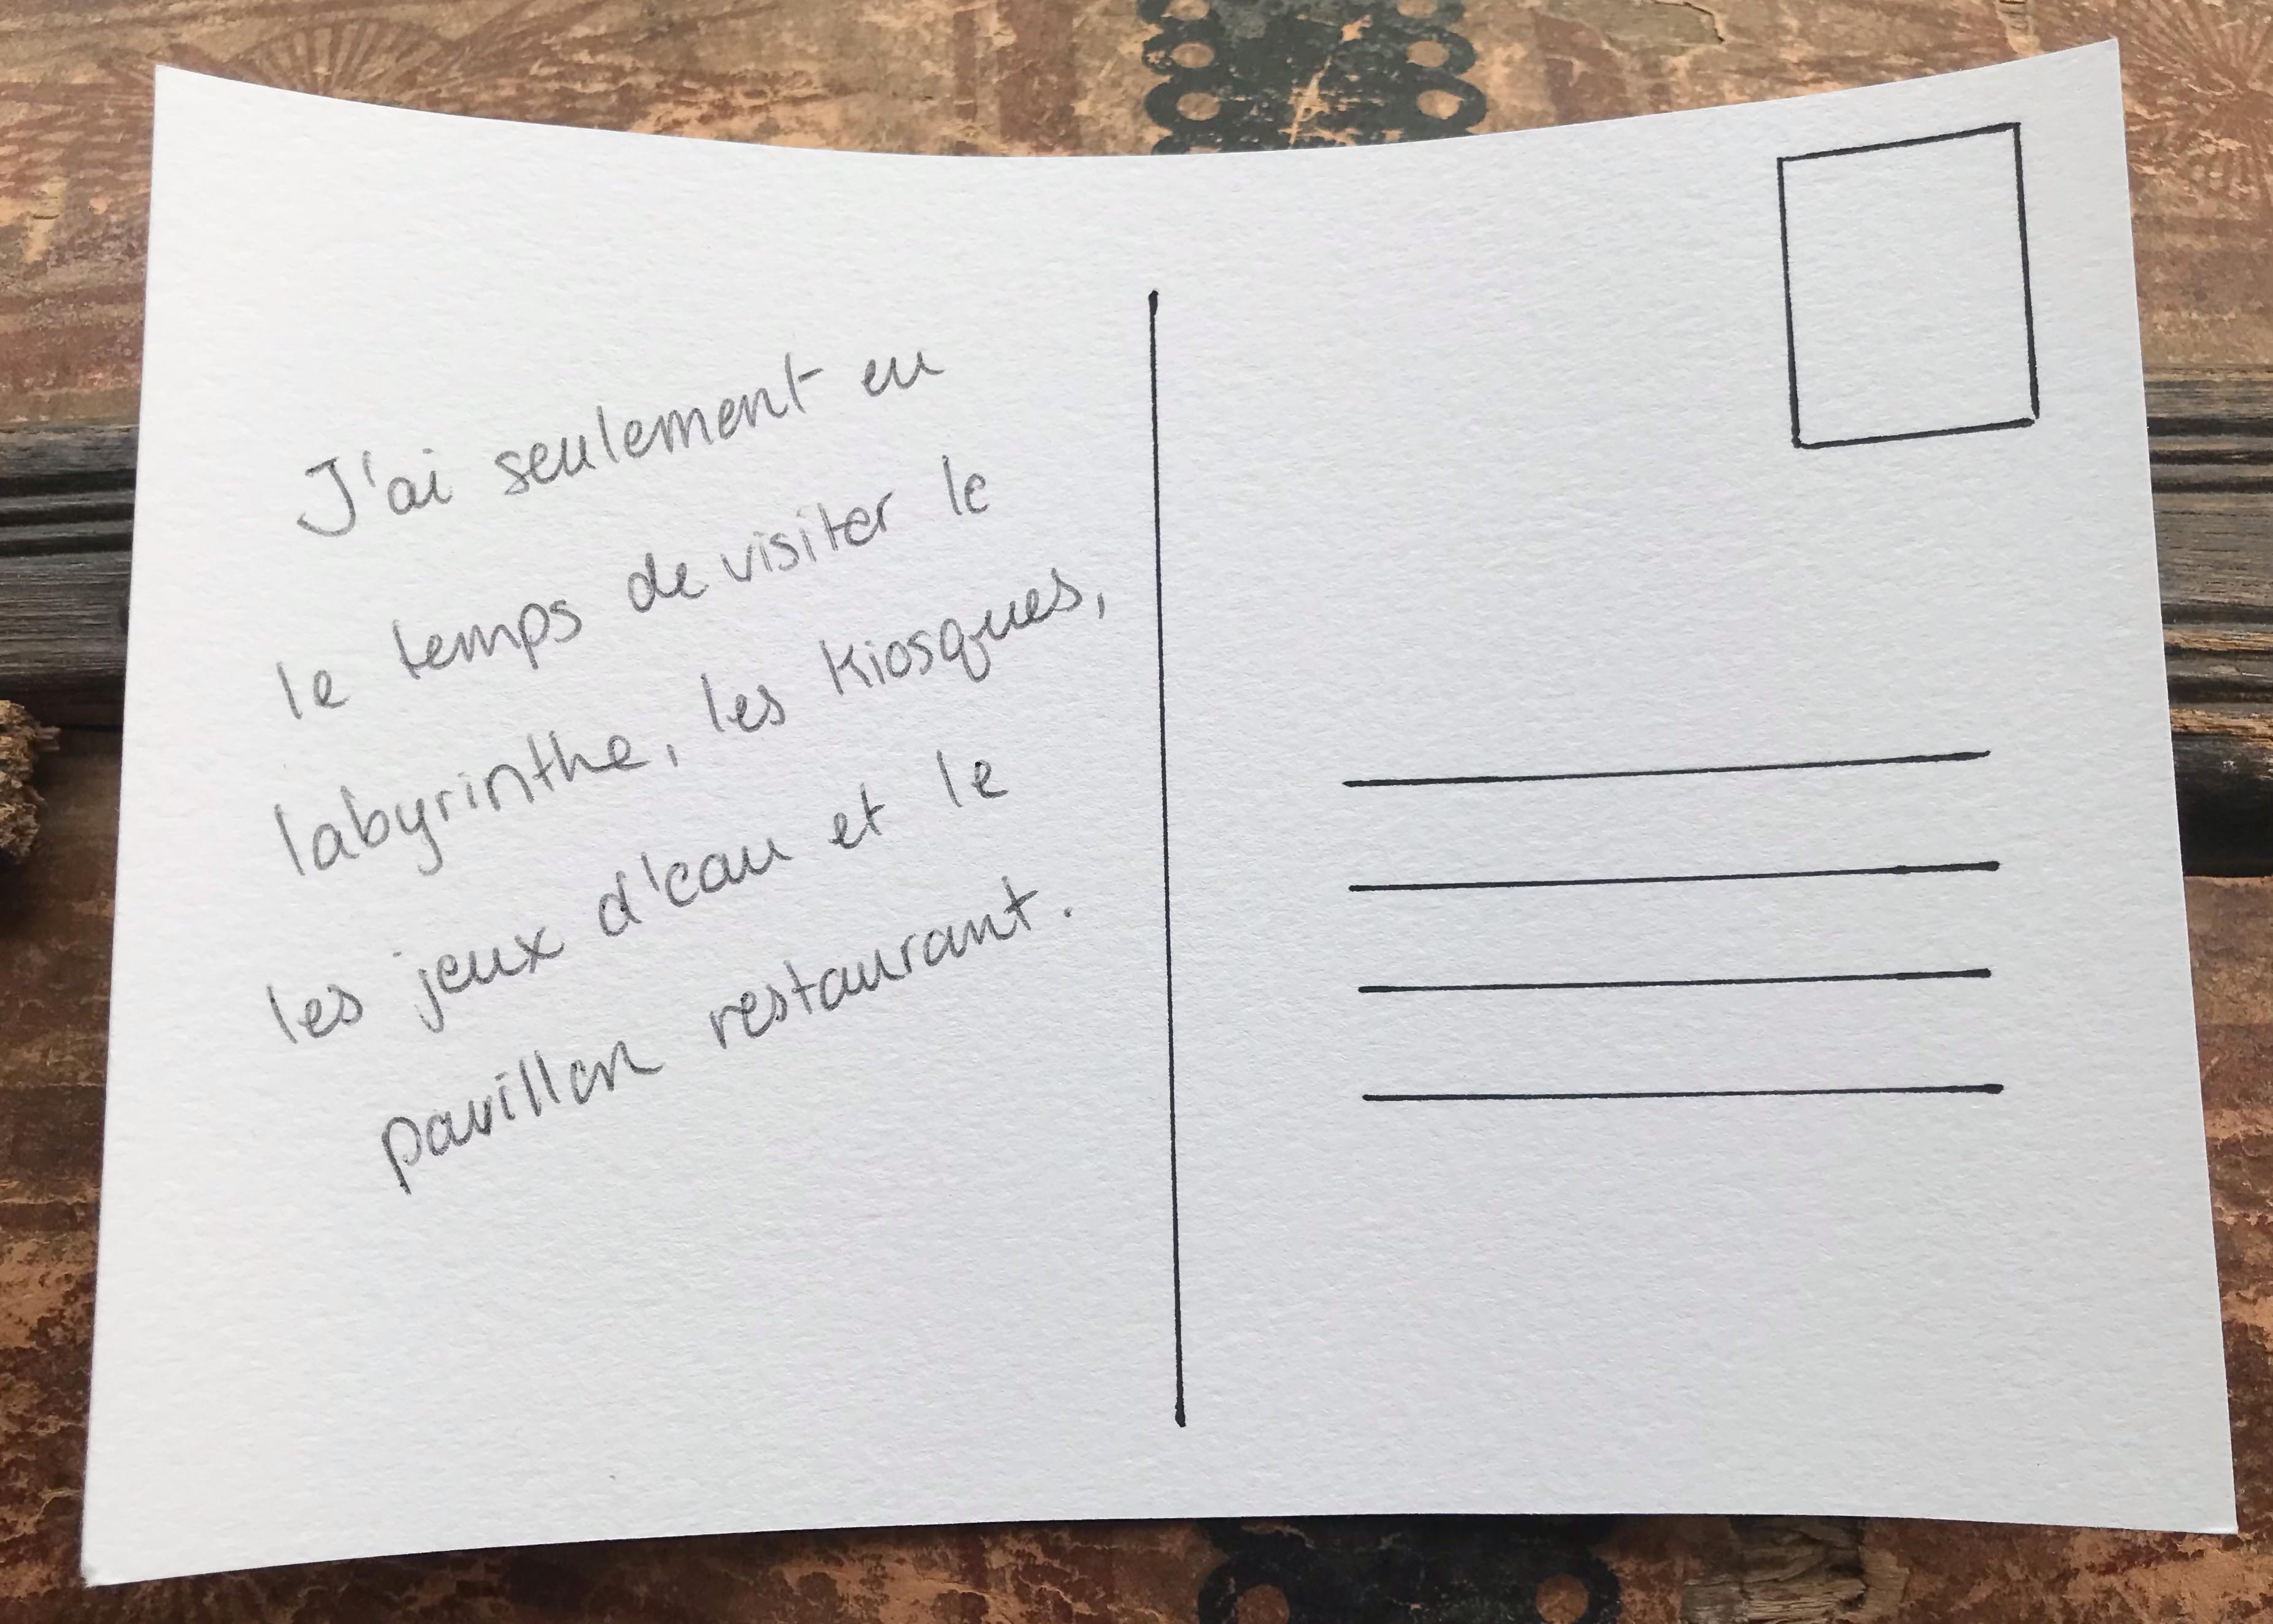 J'ai seulement eu
le temps de visiter le
labyrinthe, les kiosques,
les jeux d'eau et le
pavillon restaurant.